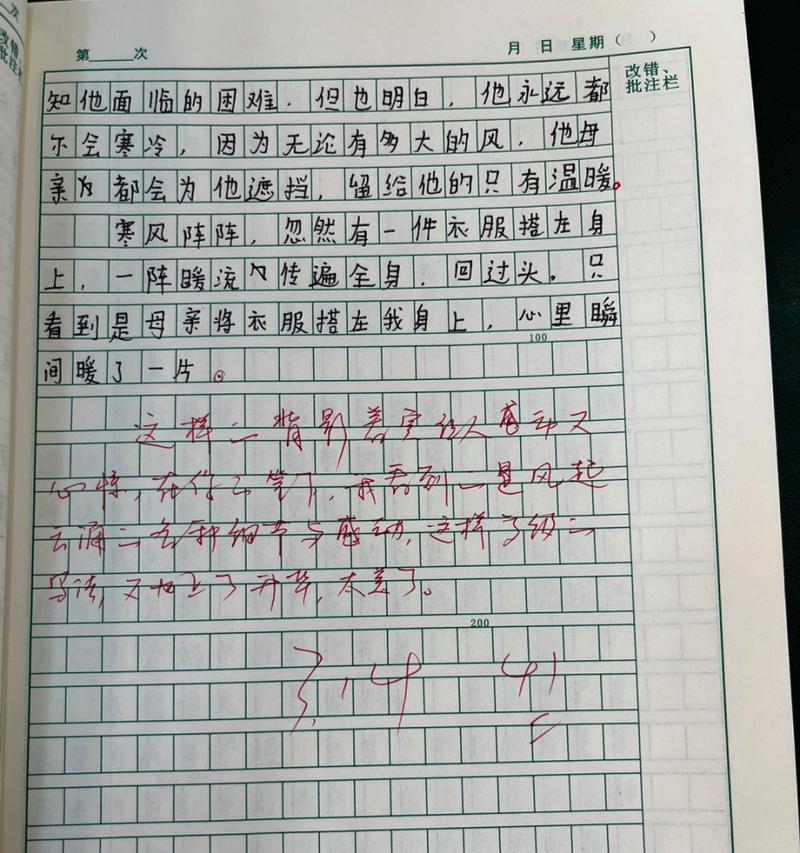 次
改错、
批注栏
第 次
月 日 星期( )
改错、
批注栏
知他面临的困难，但也明白，他永远都
不会寒冷，因为无论有多大的风，他母
亲为都会为他遮挡，留给他的只有温暖。
寒风阵阵，忽然有一件衣服搭在身
上，一阵暖流传遍全身，回过头。只
看到是母亲将衣服搭在我身上，心里瞬
100
间暖了一片。
这样的背影着实让人感动又
心惊，在你的笔下，我看到的是风起
云涌的各种细节与感动，这样高级的
写法，又加上了升华，太美了。
200
3.14 41